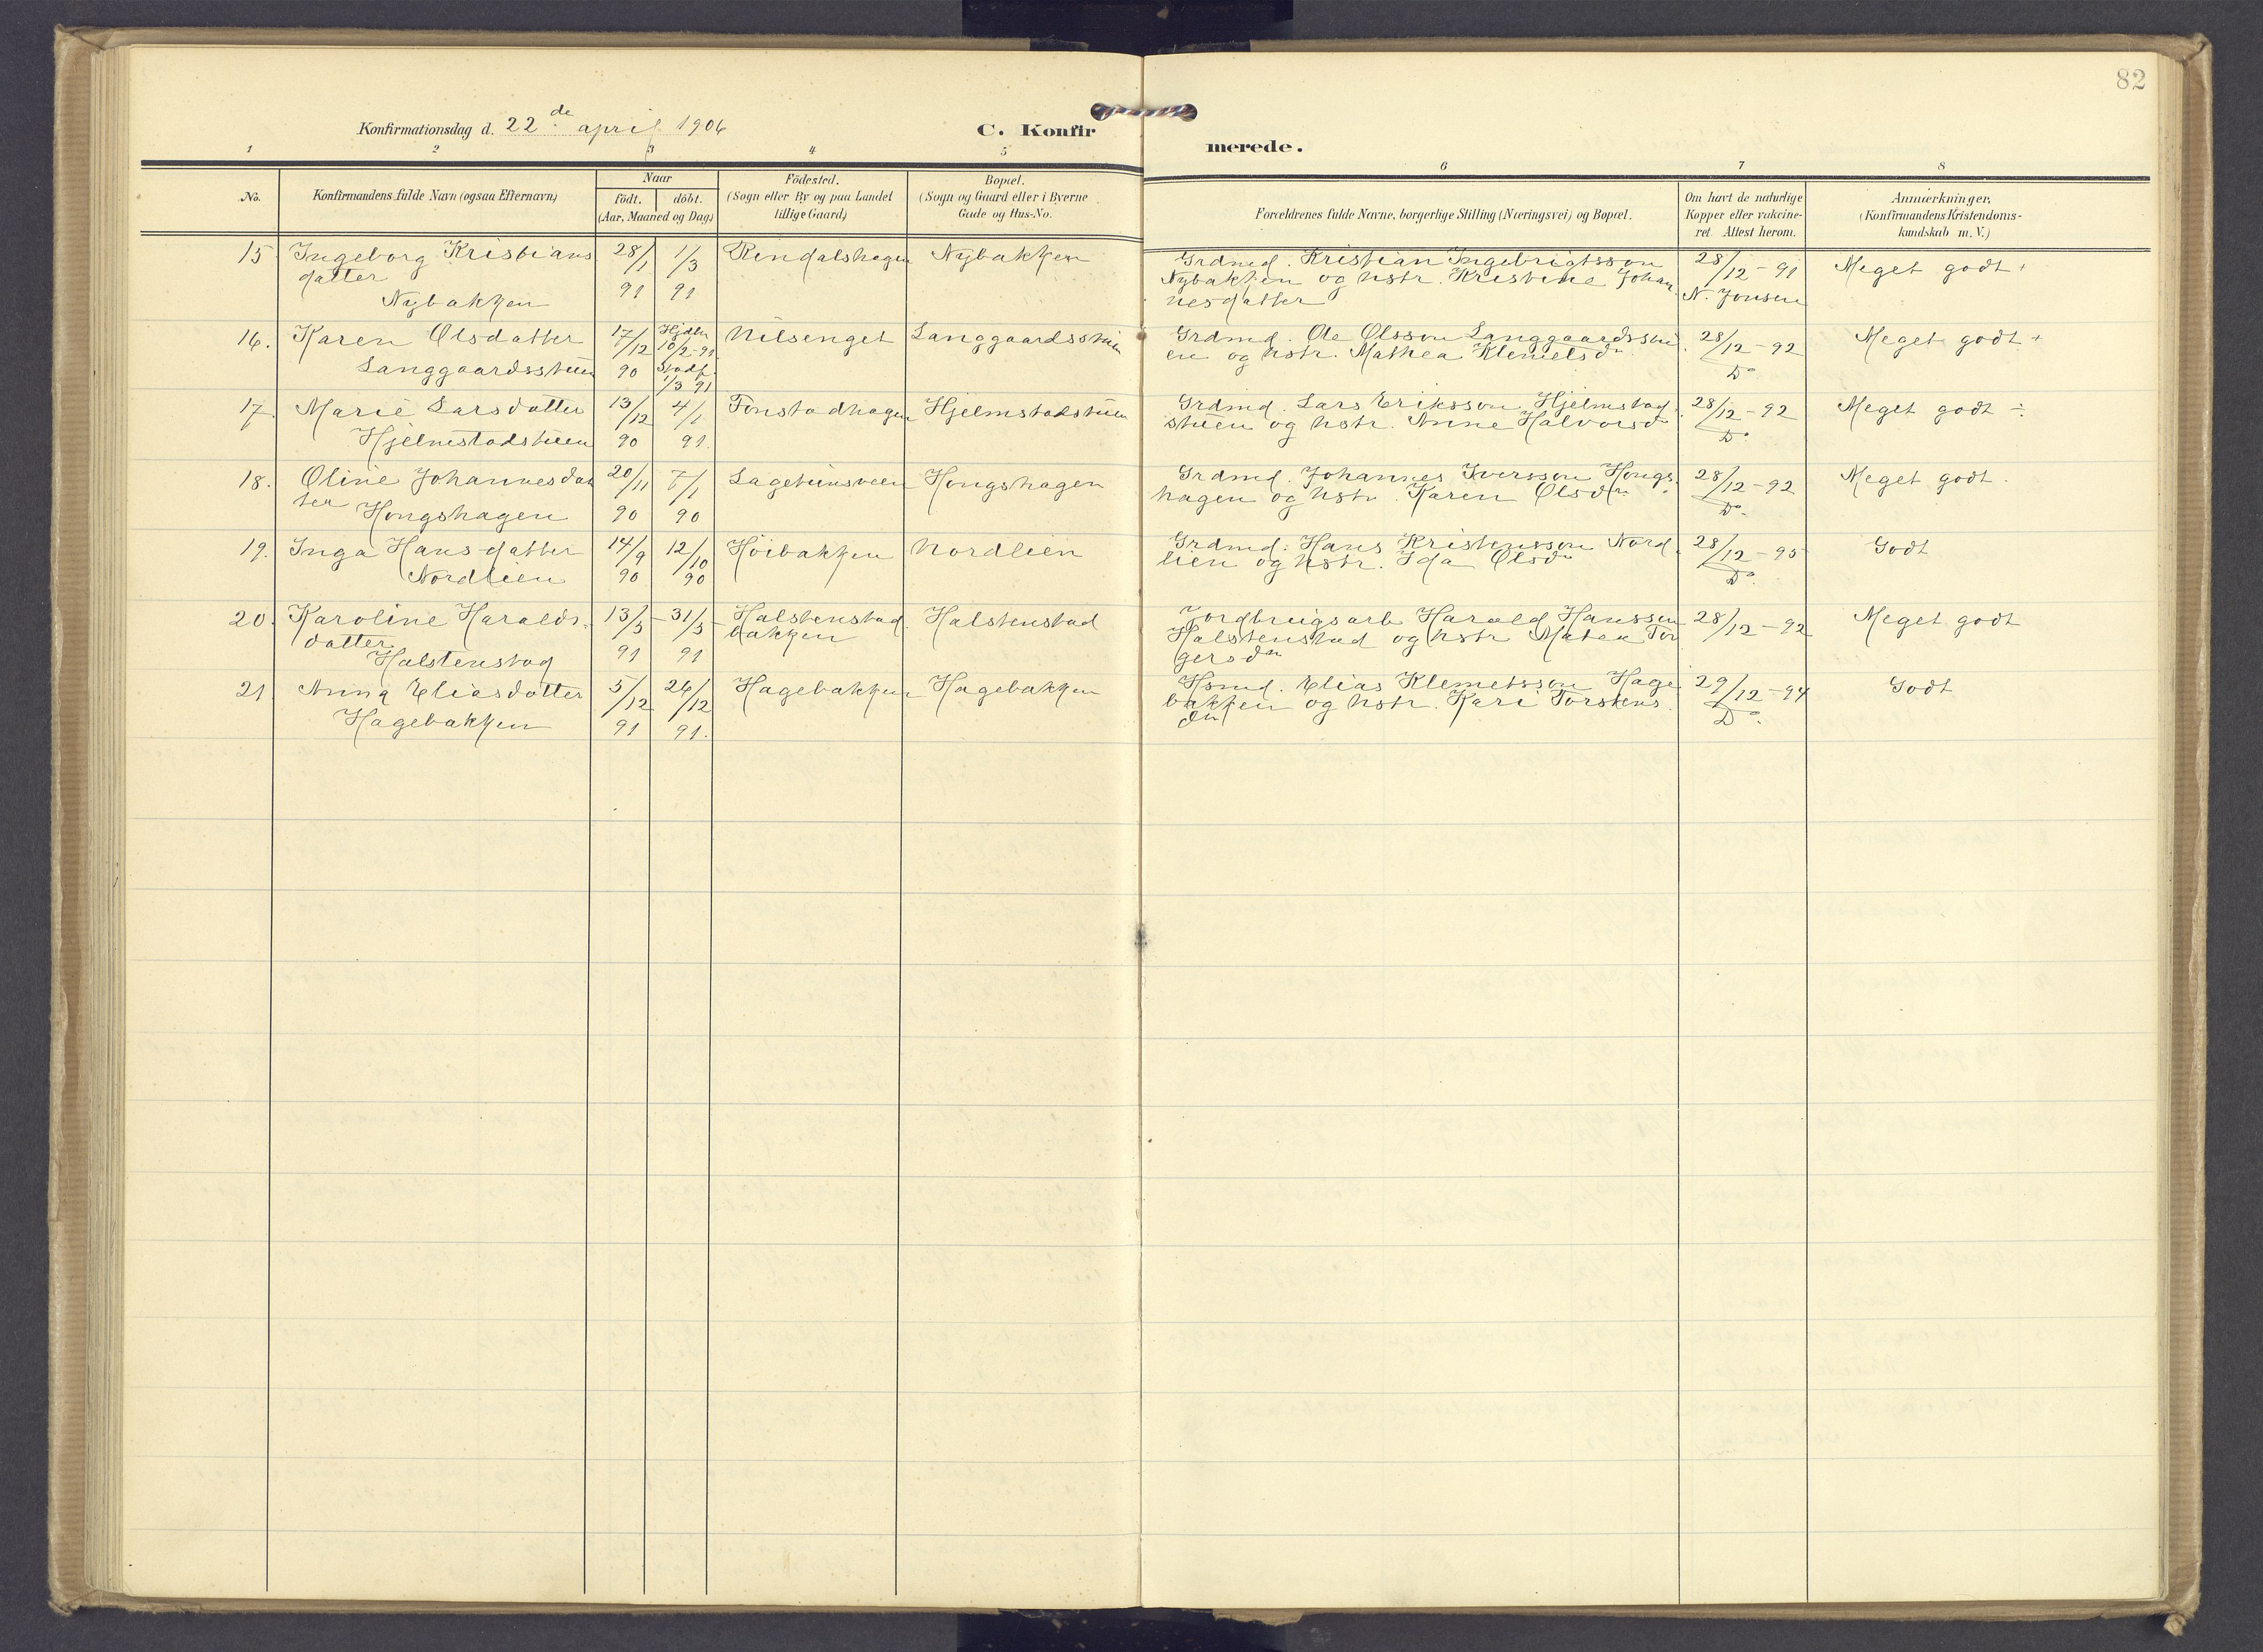 82
Konfirmationsdag d. 22de april 1906
C. Konfirmerede.
1 2 3 4 5 6 7 8
No.
Konfirmandens fulde Navn (ogsaa Efternavn)
Naar
födt. döbt.
(Aar, Maaned og Dag)
Födested.
(Sogn eller By og paa Landet
tillige Gaard)
Bopæl.
(Sogn og Gaard eller i Byerne
Gade og Hus-No.
Forældrenes fulde Navne, borgerlige Stilling (Næringsvei) og Bopæl.
Om havt de naturlige
Kopper eller vakcine-
ret. Attest herom.
Anmærkninger.
(Konfirmandens Kristendoms-
kundskab m. V.)
15 Ingeborg Kristians
datter
Nybakken
28/1 91
1/3 91
Rindalshagen
Nybakken
Grdmd. Kristian Ingebrigtsson
Nybakken og hstr. Kristine Johan
nesdatter
28/12-91
N. Jonsen
Meget godt +
16. Karen Olsdatter
Langgaardsstuen
17/12 90
Hjdbt
10/2-91
Stadf.
1/3 91
Nilsenget
Langgaardsstuen
Grdmd. Ole Olsson Langgaardsstu
en og hstr. Mathea Klemetsdr
28/12-92
Do
Meget godt +
17. Marie Larsdatter
Hjelmstadstuen
13/12 90
4/1 91.
Fonstadhagen
Hjelmstadstuen
Grdmd. Lars Eriksson Hjelmstad
stuen og hstr. Anne Halvorsdr
28/12-92
Do.
Meget godt ÷
18. Oline Johannesdat
ter Hongshagen
20/11 90
7/1 90
Hongshagen
Grdmd. Johannes Iversson Hongs
hagen og hstr. Karen Olsdr.
28/12-92
Do.
Meget godt.
19. Inga Hansdatter
Nordlien
14/9 90
12/10 90
Höibakken
Nordlien
Grdmd. Hans Kristensson Nord
lien og hstr. Ida Olsdr
28/12-95
Do.
Godt
20. Karoline Haralds-
datter
Halstenstad
13/3 91
31/3 91
Halstenstad
bakken
Halstenstad
Jordbrugsarb Harald Hanssen
Halstenstad og hstr Matea Tor
gersdr
28/12-92
Meget godt
21 Anna Eliasdatter
Hagebakken
5/12 91
26/12 91.
Hagebakken
Hagebakken
Hsmd. Elias Klemetsson Hage
bakken og hstr. Kari Torstens
dr
29/12-94
Do.
Godt